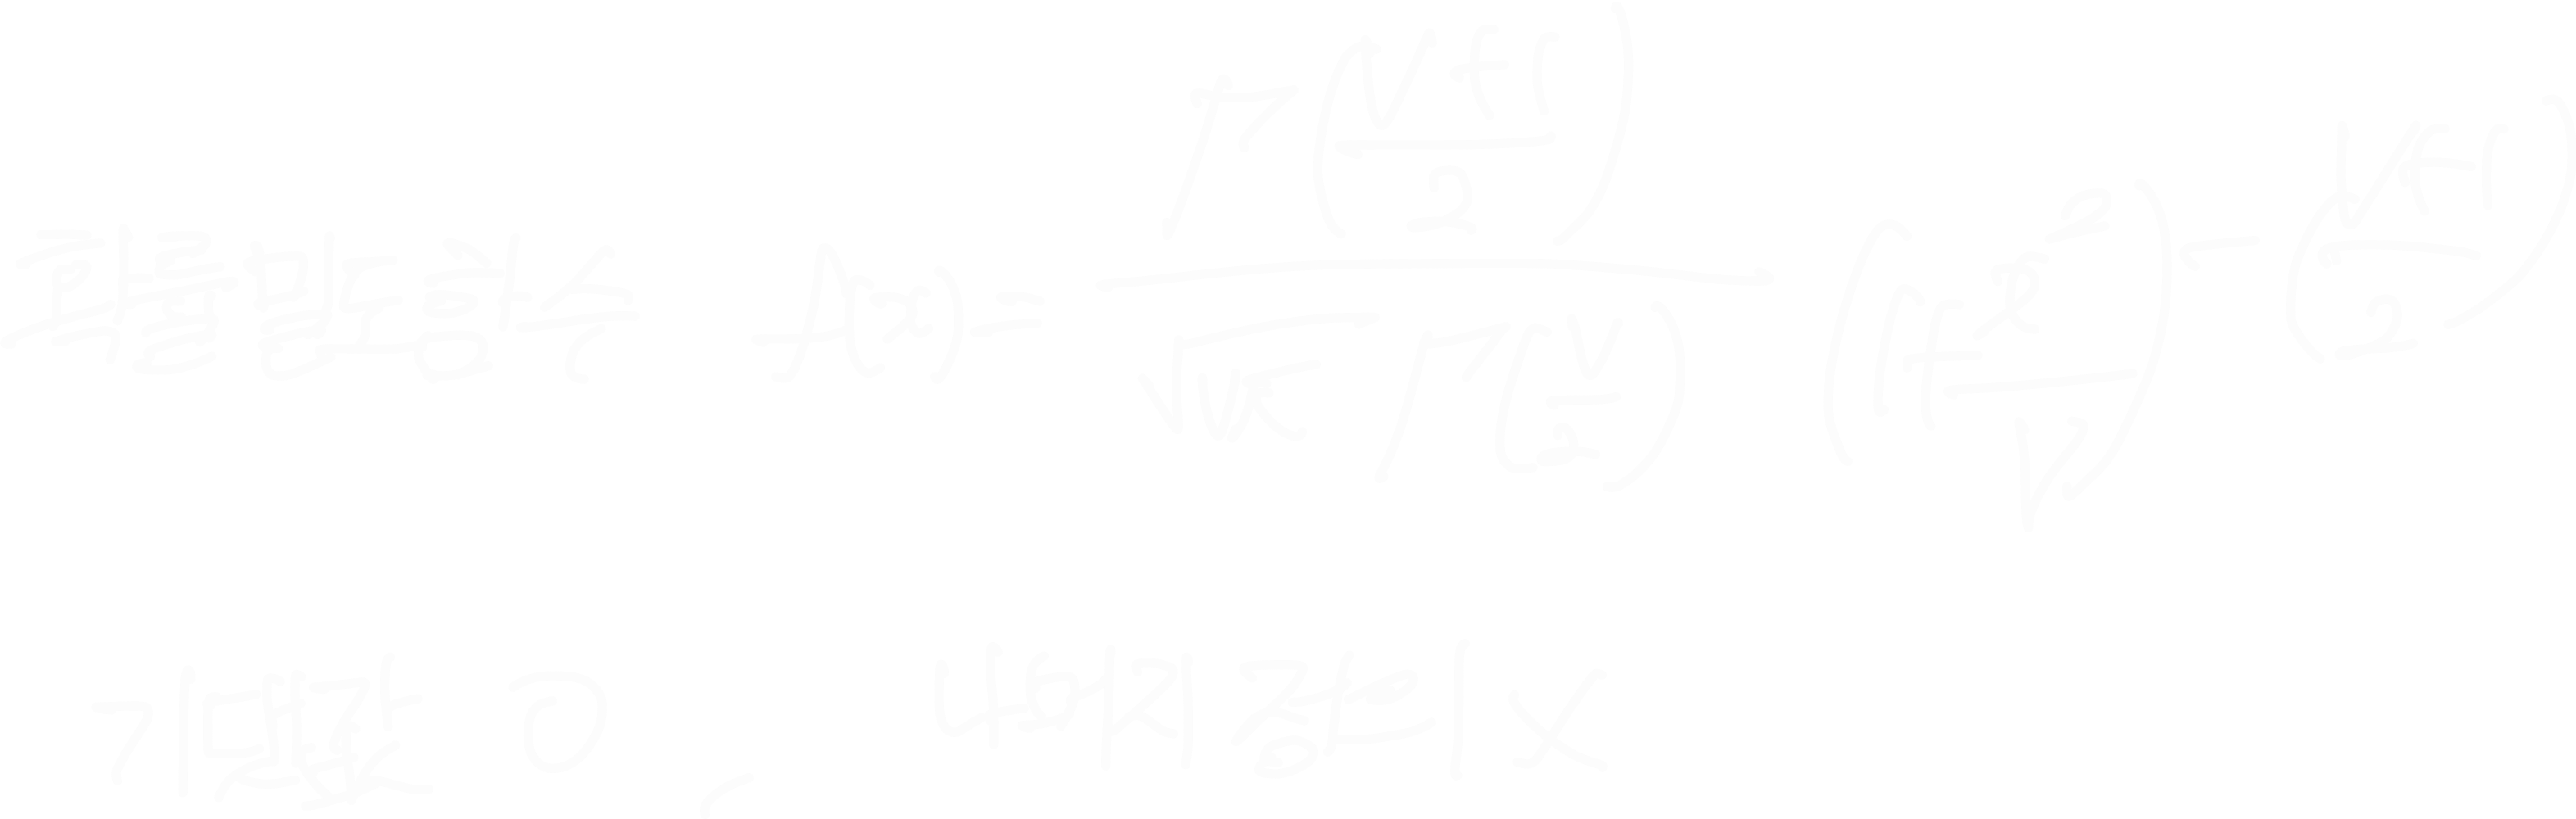 확률밀도함수 f(x) = \frac{Γ(\frac{ν+1}{2})}{\sqrt{νπ} Γ(\frac{ν}{2})} (1+\frac{x^2}{ν})^{-(\frac{ν+1}{2})}
기댓값 0, 나머지 정의 X